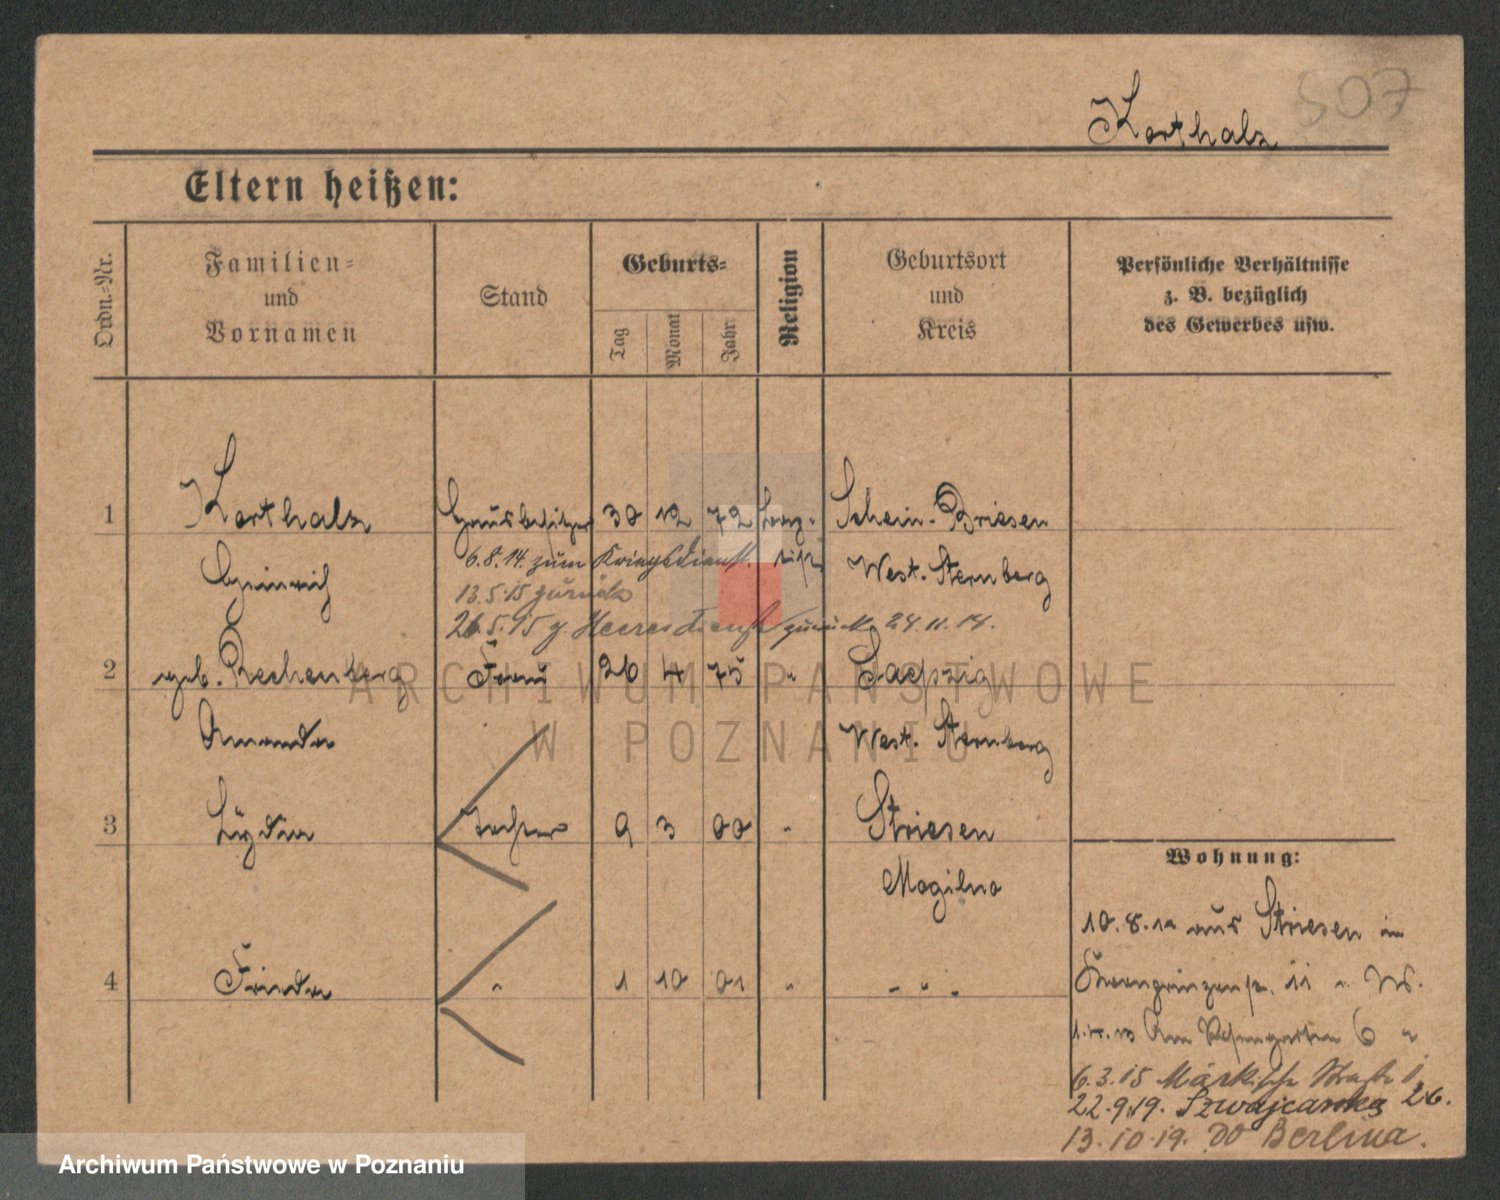 507
Korthals
Eltern heißen:
Ordn.-Nr.
Familien-
und
Vornamen
Stand
Geburts-
Tag
Monat
Jahr
Religion
Geburtsort
und
Kreis
Persönliche Verhältnisse
z. B. bezüglich
des Gewerbes usw.
1 Korthals Hausbesitzer 30 12 72 Schein-Briesen
6.8.14. zum Kriegsdienst.
Heinrich West. Sternberg
13.5.15 zurück
26.5.15 z Heeresdienst zurück 24.11.14.
2 geb. Rechenberg Frau 26 4 75 "
Amanda West. Sternberg
3 Lydia Tochter 9 3 00 " Striesen
Mogilno
4 Frieda " 1 10 01 " - " -
Wohnung:
aus Striesen in
Kronprinzenstr. 11 " W.
Am Rosengarten 6 "
6.3.15 Märkische Straße 1
22.9.19. Szwajcarska 26.
13.10.19. do Berlina.
ARCHIWUM PAŃSTWOWE
W POZNANIU
Archiwum Państwowe w Poznaniu